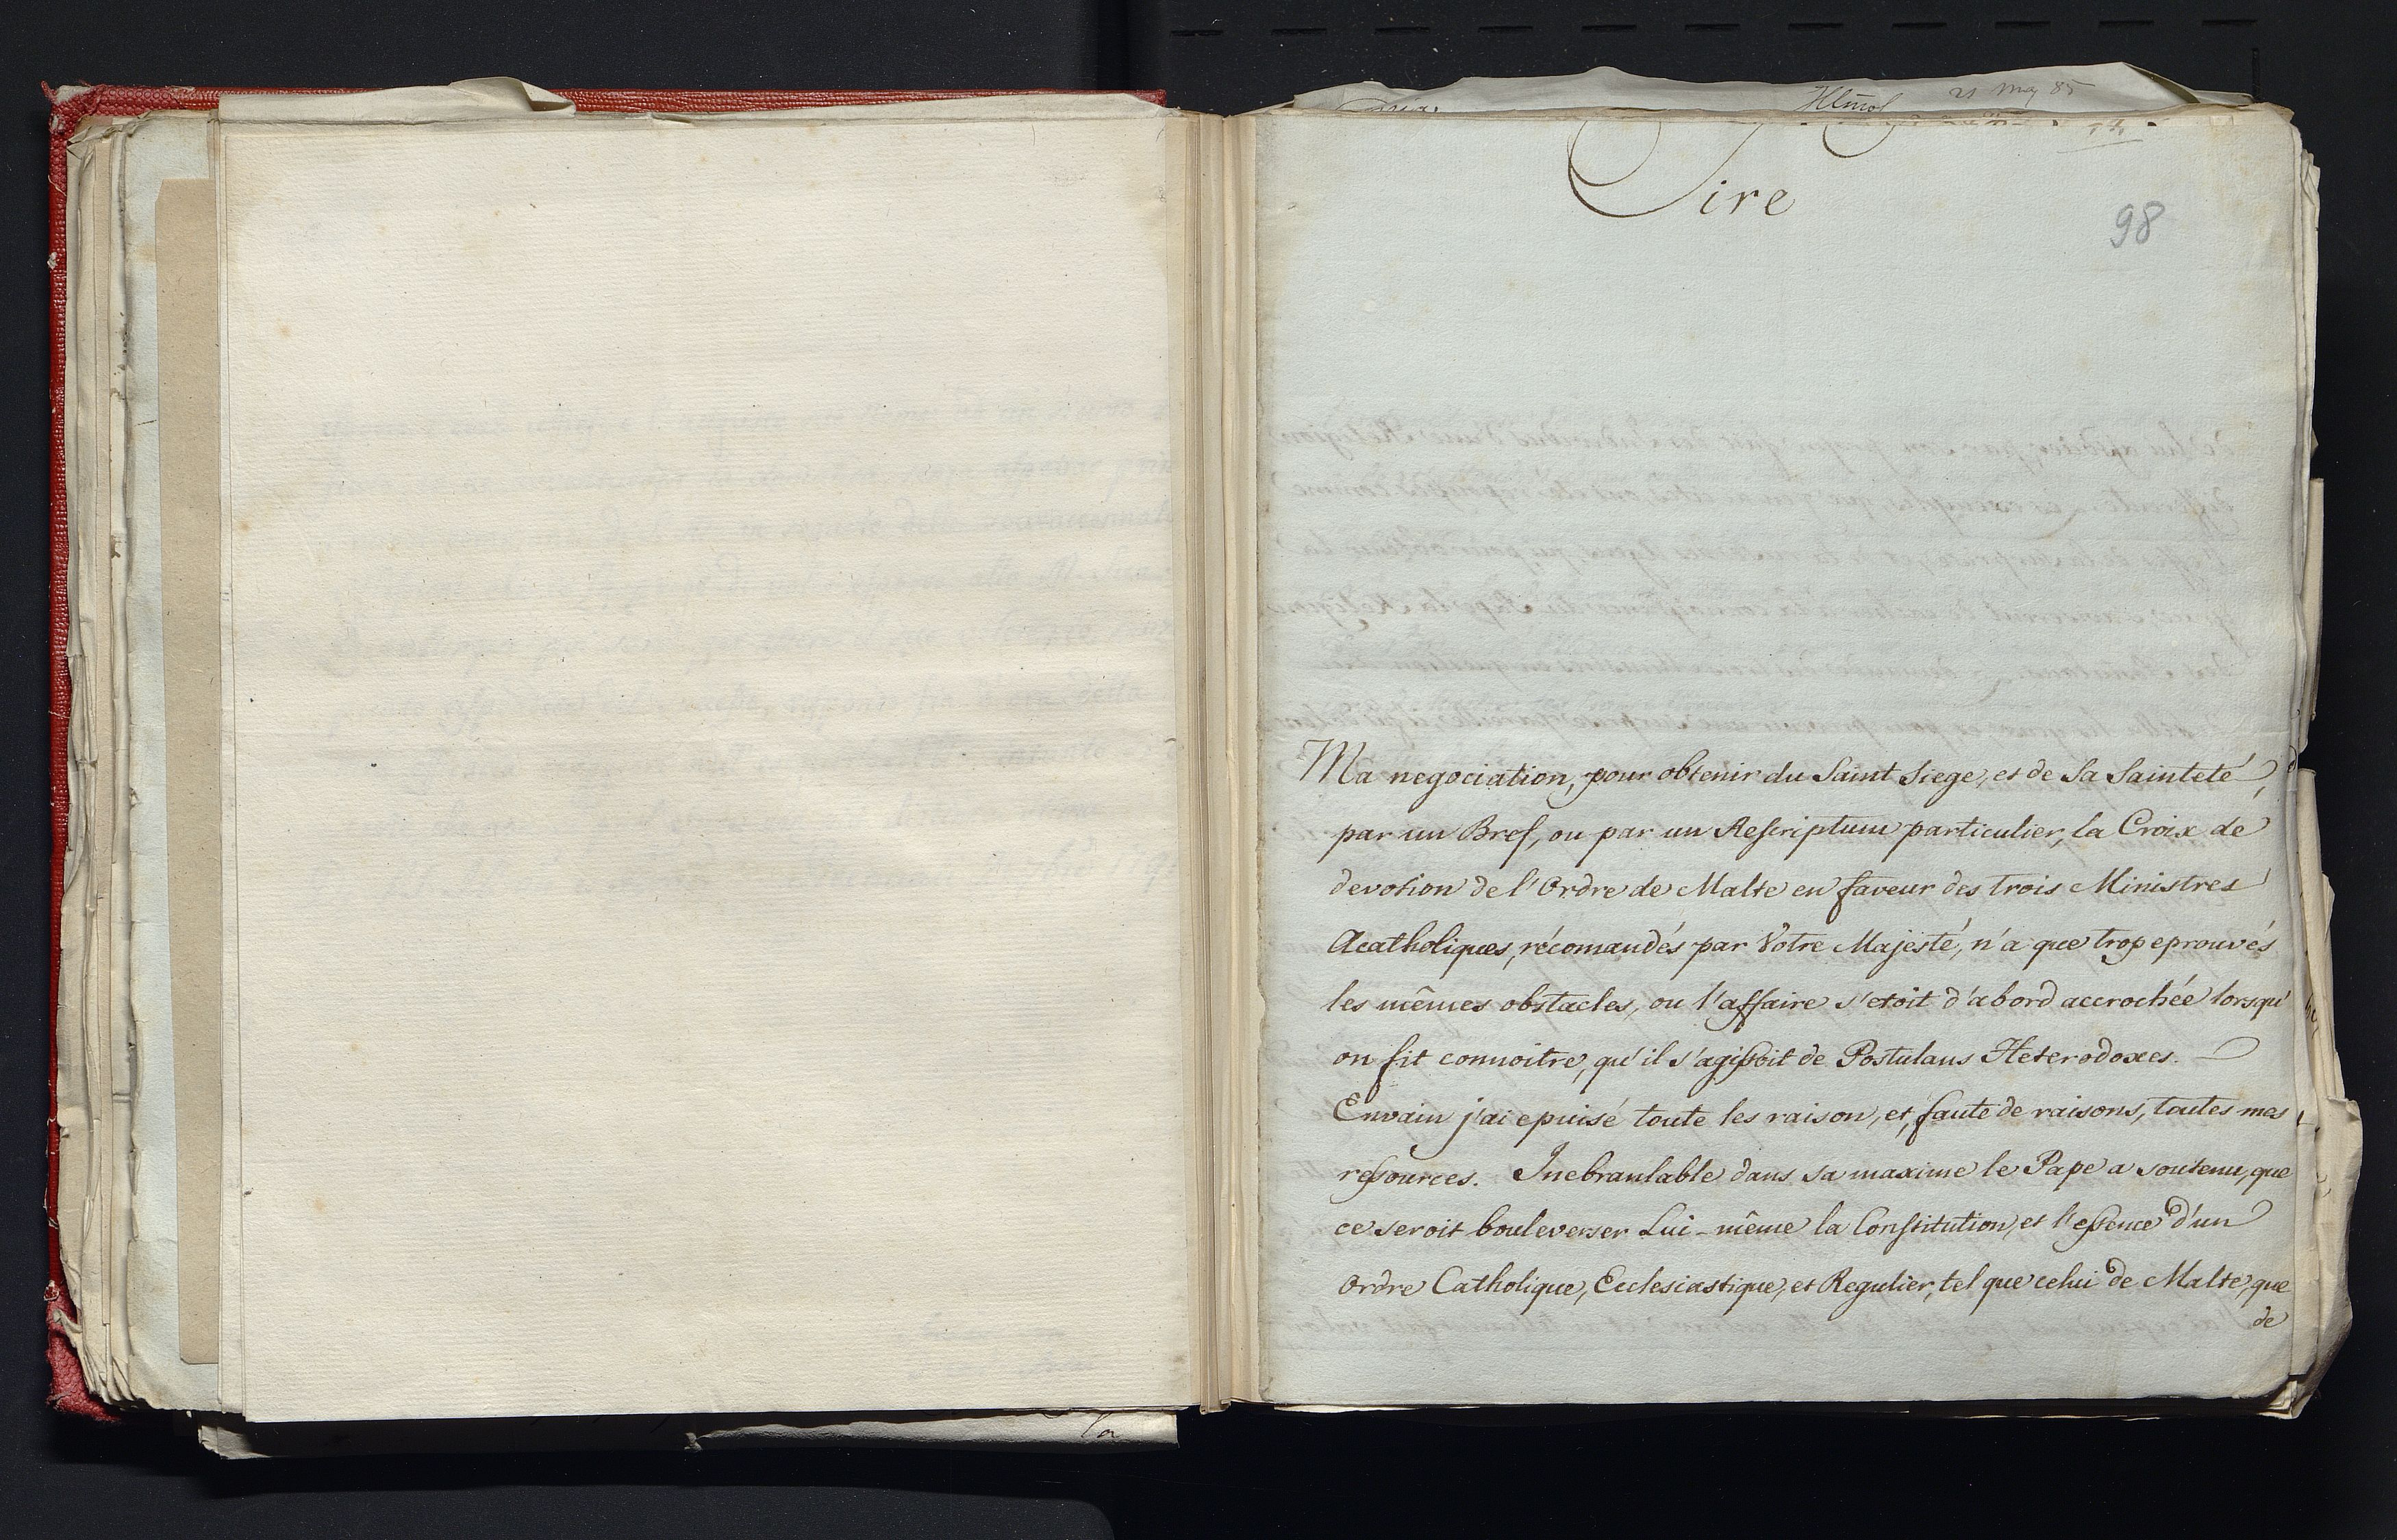 21 May 85
Sire
98
Ma negociation, pour obtenir du Saint Siege, et de Sa Sainteté,
par un Bref, ou par un Rescriptum particulier, la Croix de
devotion de l'Ordre de Malte en faveur des trois Ministres
Acatholiques, récomandés par Votre Majesté, n'a que trop eprouvés
les mêmes obstacles, ou l'affaire s'etoit d'abord accrochée lorsqu'
on fit connoitre, qu'il s'agissoit de Postulans Heterodoxes. —
Envain j'ai epuisé toute les raison, et, faute de raisons, toutes mes
ressources. Inebranlable dans sa maxime le Pape a soutenu, que
ce seroit bouleverser Lui-même la Constitution, et l'essence d'un
Ordre Catholique, Ecclesiastique, et Regulier, tel que celui de Malte, que
de